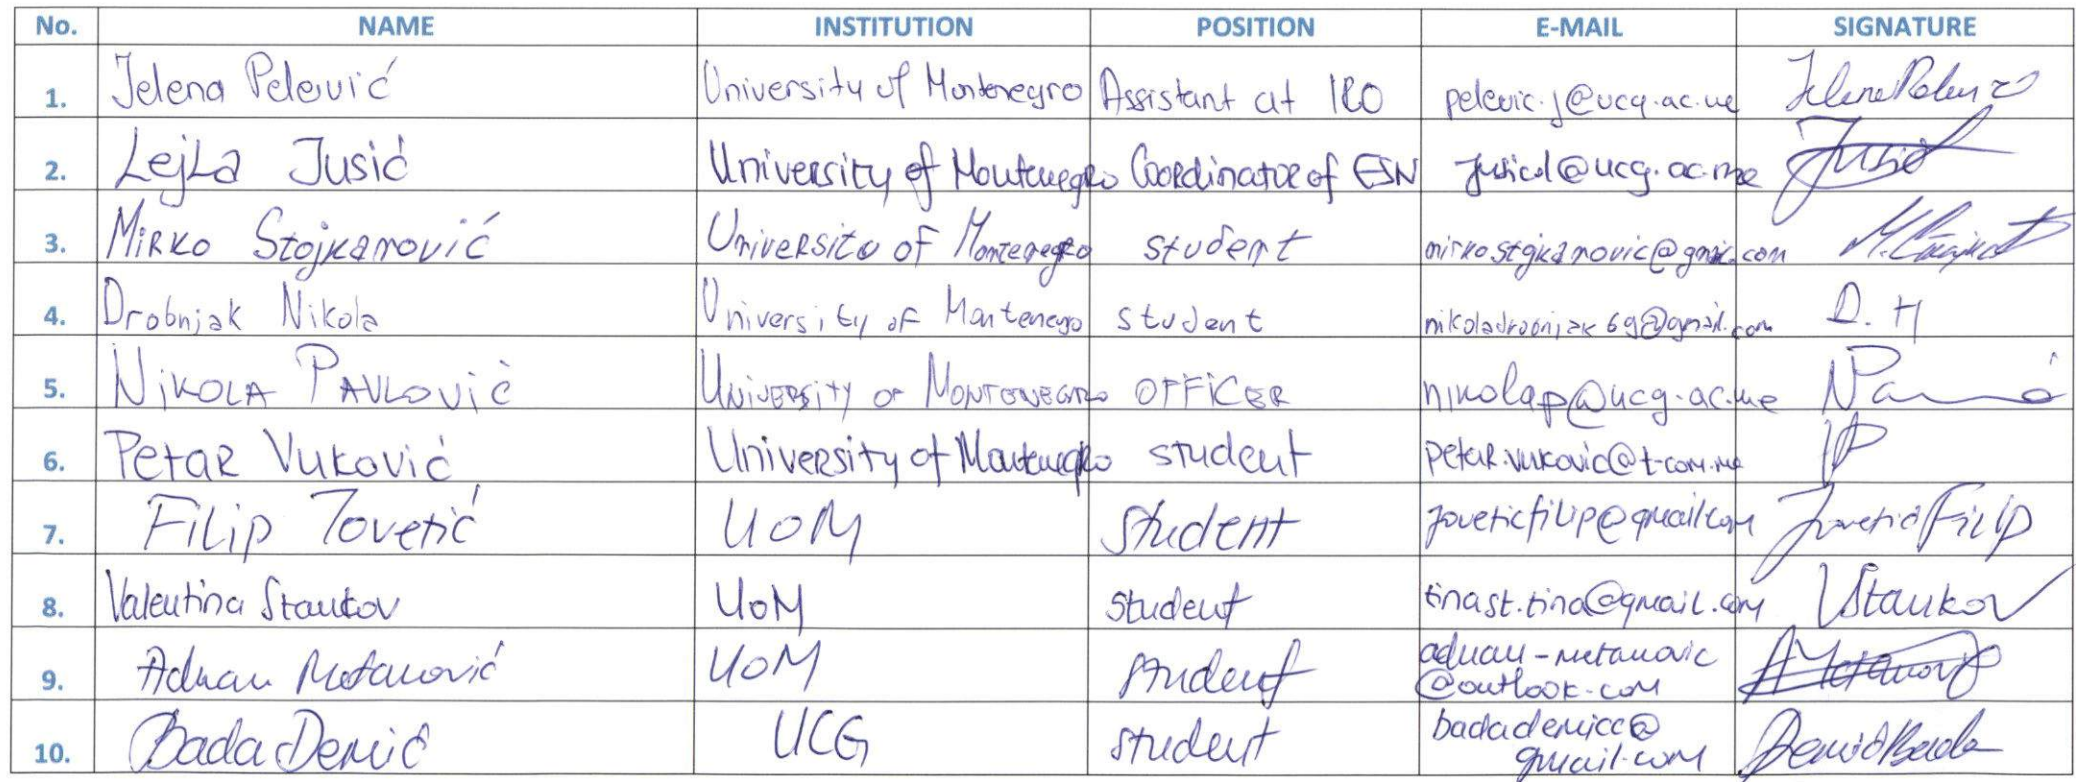 No. NAME INSTITUTION POSITION E-MAIL SIGNATURE
1. Jelena Pelević University of Montenegro Assistant at IRO pelevic.j@ucg.ac.me Jelena Pelević
2. Lejla Jusić University of Montenegro Coordinator of ESN jusicl@ucg.ac.me Jusić
3. Mirko Stojkanović Universito of Montenegro student mirkostojkanovic@gmail.com
4. Drobnjak Nikola University of Montenegro student nikoladrobnjak69@gmail.com D. H
5. NiKOLA PAVLOVić UNiVERSiTY OF MONTENEGRO OFFiCER nikolap@ucg.ac.me
6. Petar Vuković University of Montenegro student petar.vukovic@t-com.me
7. Filip Jovetić UoM student joveticfilip@gmail.com Jovetić Filip
8. Valentina Stankov UoM student tinast.tina@gmail.com VStankov
9. Adnan Metanović UoM student adnan-metanovic
@outlook.com AMetanović
10. Bada Demić UCG student badademicc@
gmail.com Demić Bada